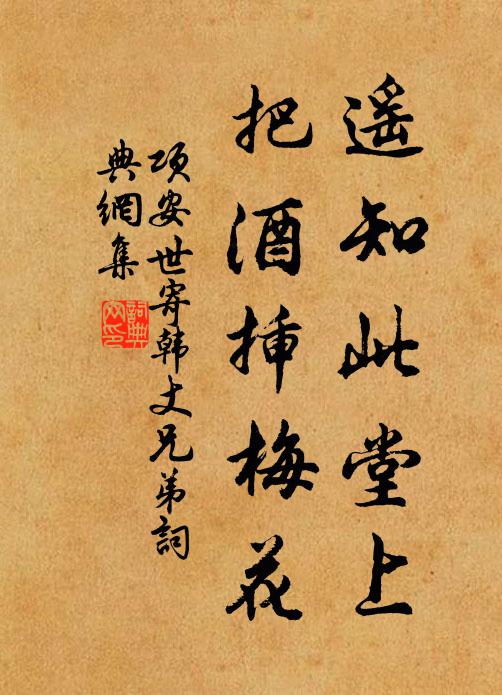 遥知此堂上
把酒插梅花
项安世寄韩丈兄弟詞
典網集
詞典
网印